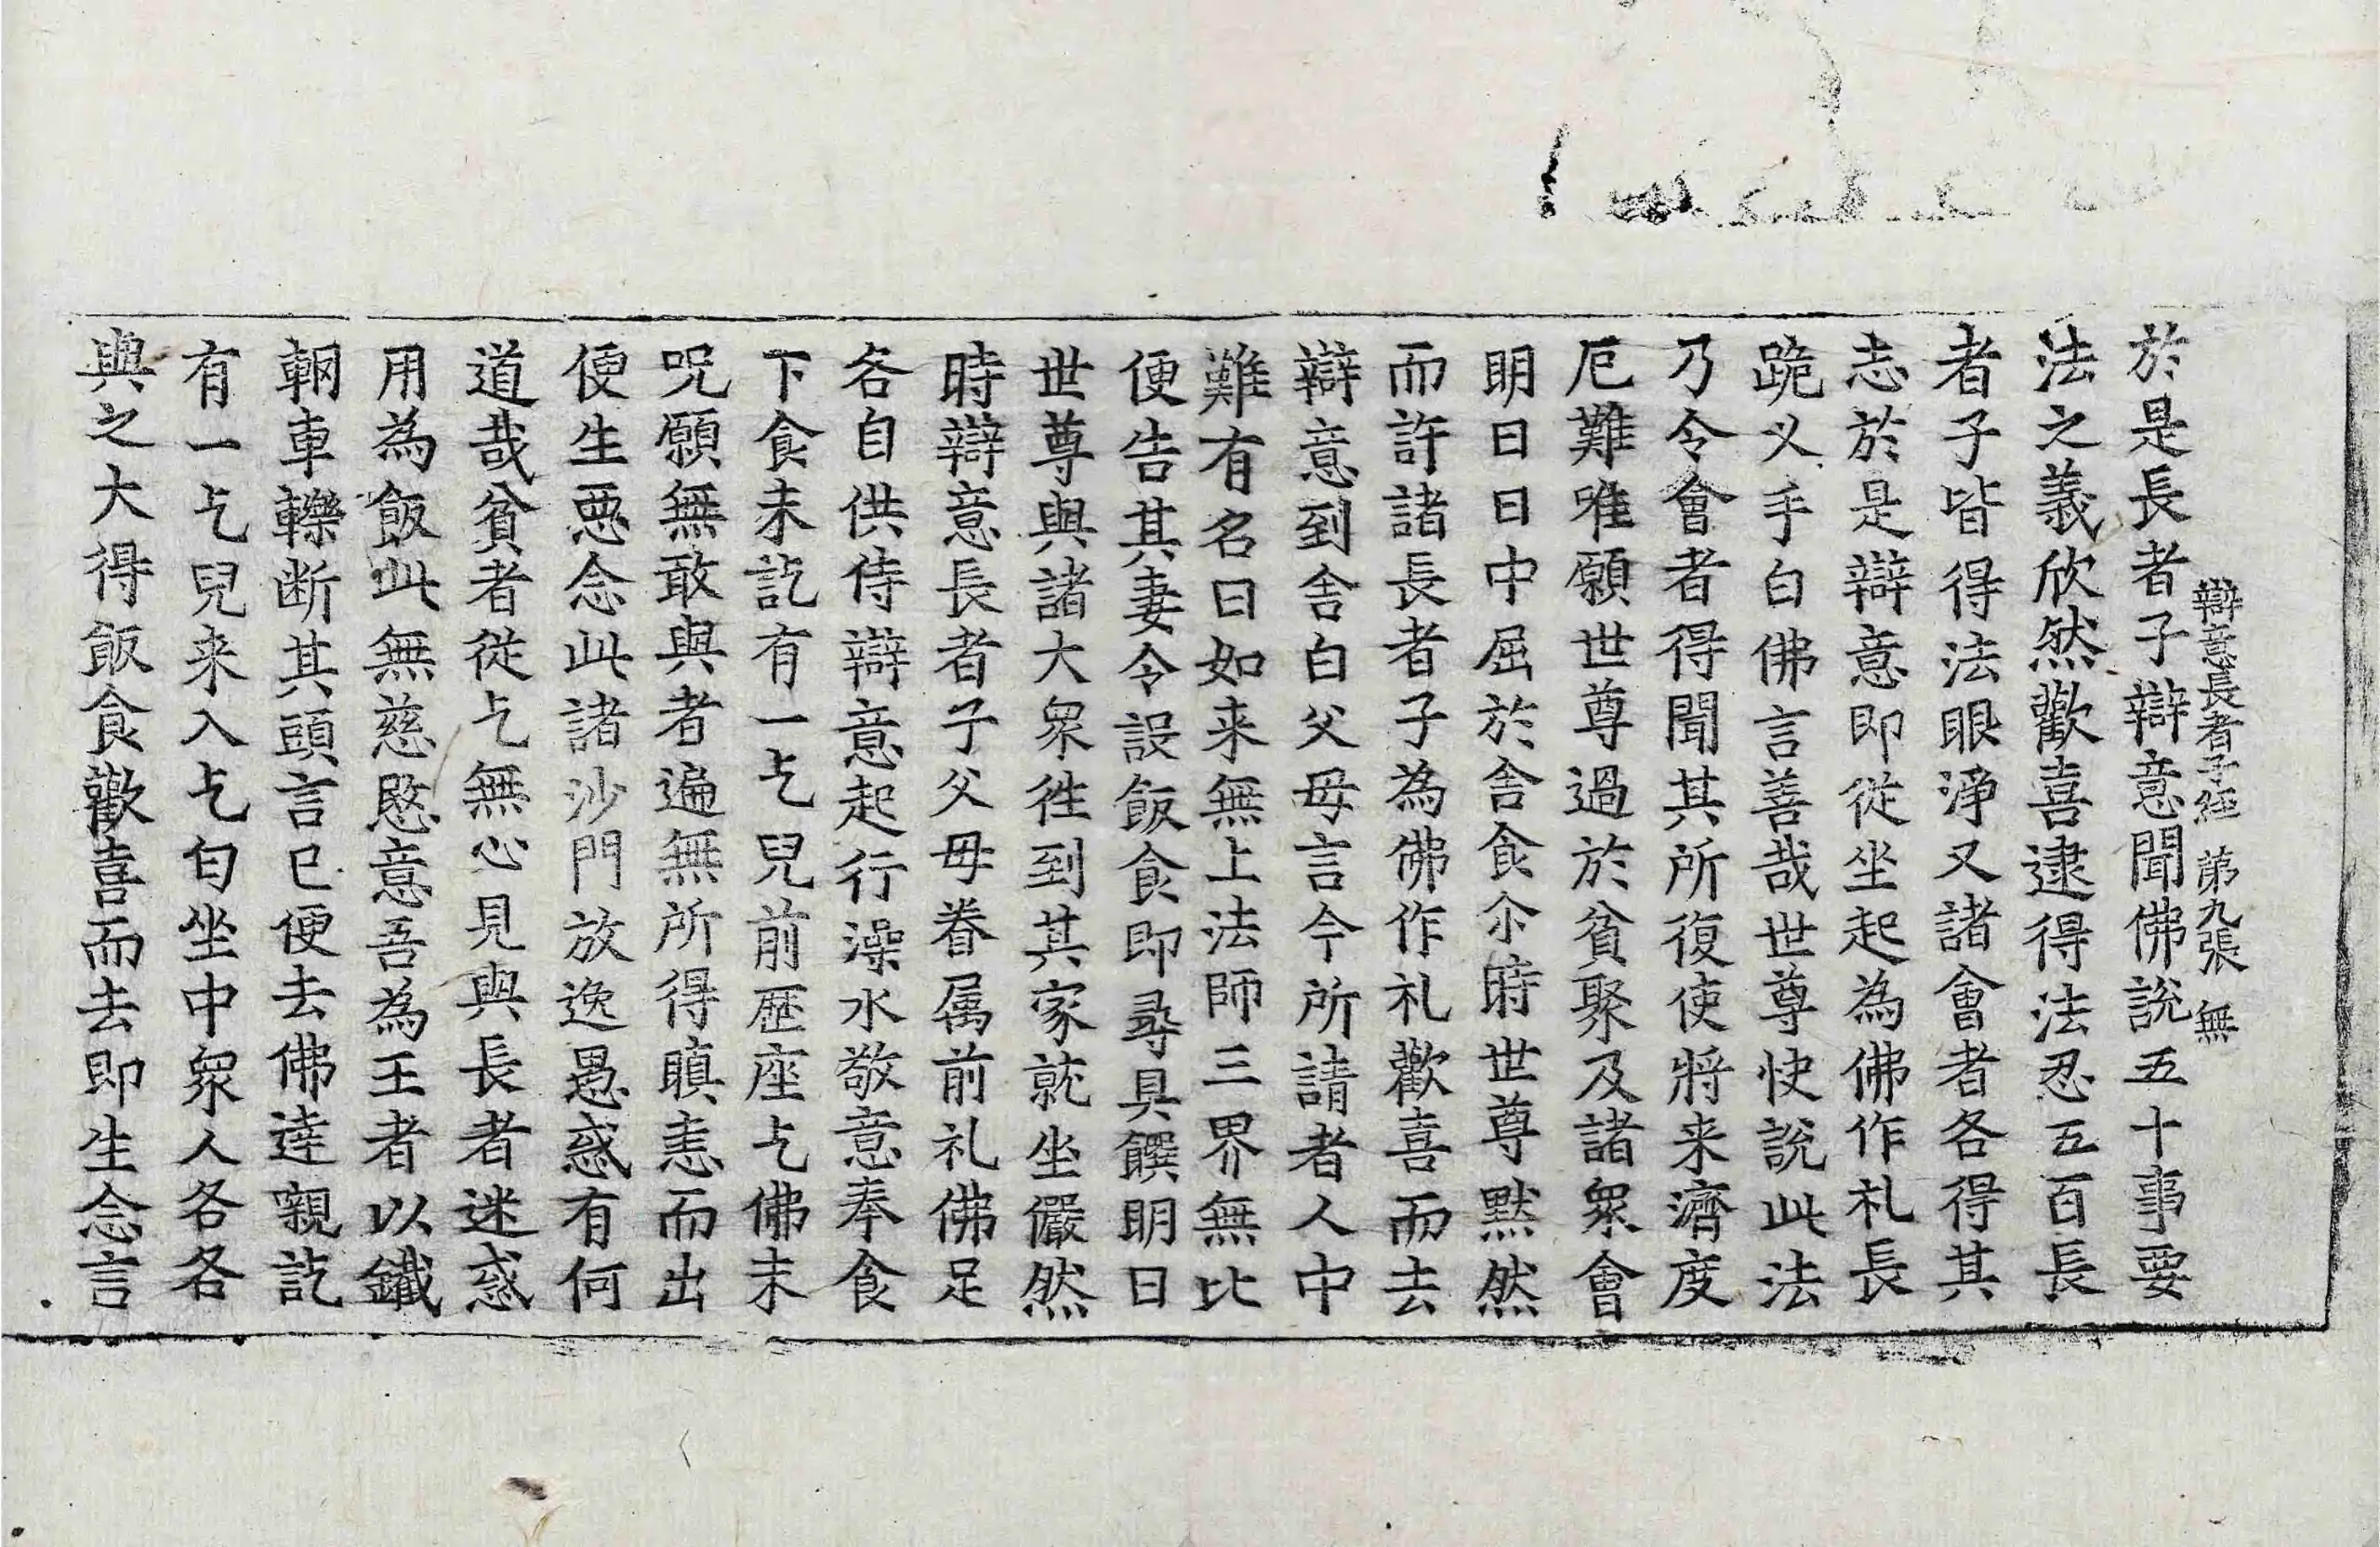 辯意長者子經 第九張 無
於是長者子辯意聞佛說五十事要
法之義欣然歡喜逮得法忍五百長
者子皆得法眼淨又諸會者各得其
志於是辯意即從坐起為佛作礼長
跪叉手白佛言善哉世尊快說此法
乃令會者得聞其所復使將来濟度
厄難唯願世尊過於貧聚及諸衆會
明日日中屈於舍食尒時世尊默然
而許諸長者子為佛作礼歡喜而去
辯意到舍白父母言今所請者人中
難有名曰如来無上法師三界無比
便告其妻令設飯食即尋具饌明日
世尊與諸大衆徃到其家就坐儼然
時辯意長者子父母眷属前礼佛足
各自供侍辯意起行澡水敬意奉食
下食未訖有一乞兒前歷座乞佛未
呪願無敢與者遍無所得瞋恚而出
便生惡念此諸沙門放逸愚惑有何
道哉貧者從乞無心見與長者迷惑
用為飯此無慈愍意吾為王者以鐵
輞車轢断其頭言已便去佛達嚫訖
有一乞兒来入乞匃坐中衆人各各
與之大得飯食歡喜而去即生念言